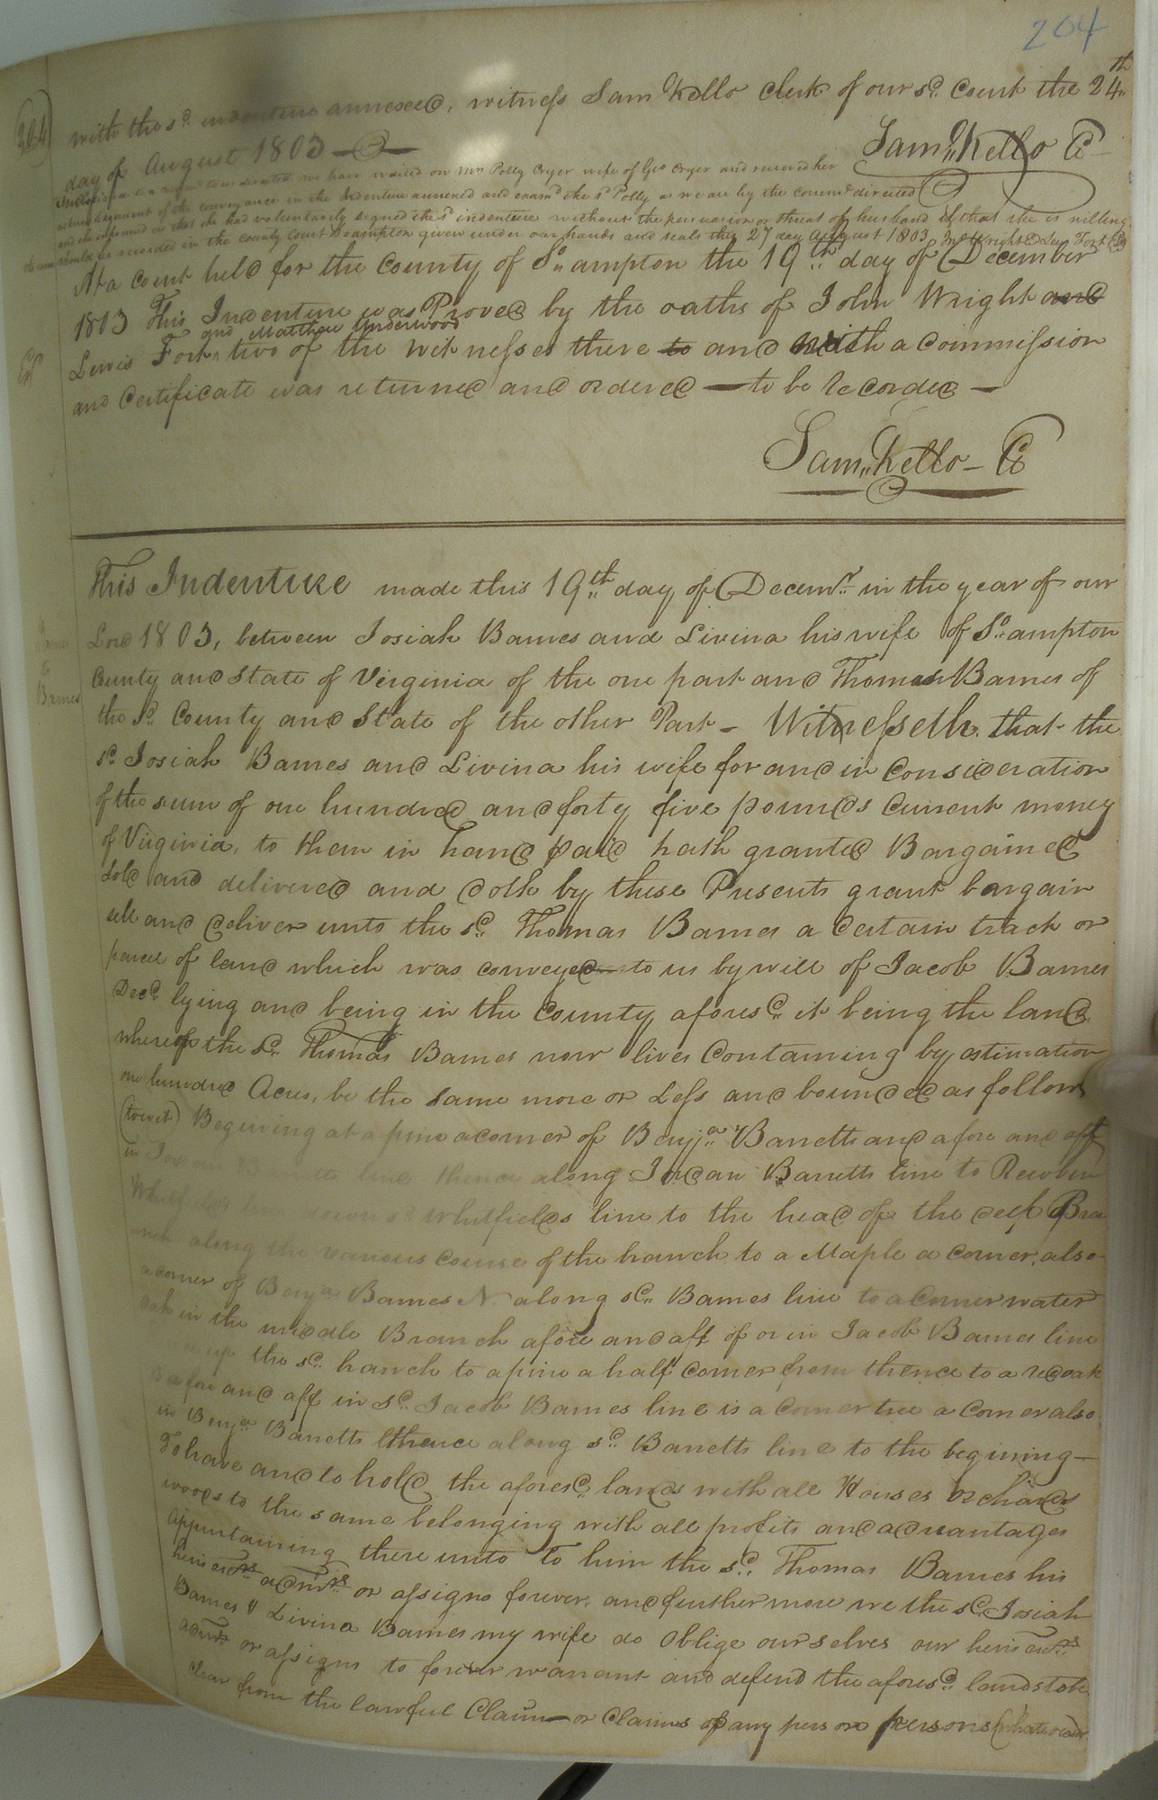 204
204
with the sd. indenture annexed, witness Sam Kello clerk of our sd. Court the 24th
day of August 1803 Sam,, Kello Cl
we have waited on Mrs Polly Cryer wife of Geo Cryer and received her
acknowledgment of the conveyance in the Indenture annexed and examd. the sd Polly as we are by the commn. directed
and she informed us that she had voluntarily signed the sd indenture without the persuasion or threat of husband & that she is willing
the same should be recorded in the county court Soampton given under our hands and seals this 27 day August 1803 Jno Wright & Lewis Fort
At a court held for the county of So,,ampton the 19th day of December
1803 This Indenture was Proved by the oaths of John Wright and
and Matthew Underwood
Lewis Fort two of the witnesses there to and with a commission
and Certificate was returned and ordered to be recorded
Sam,, Kello - Cl
This Indenture made this 19th day of Decemr. in the year of our
Lord 1803, between Josiah Barnes and Livina his wife of So,,ampton
County and State of Virginia of the one part and Thomas Barnes of
Barnes
the sd. County and State of the other Part - Witnesseth that the
sd. Josiah Barnes and Livina his wife for and in consideration
of the sum of one hundred and forty five pounds current money
of Virginia, to them in hand paid hath granted Bargained
Sold and delivered and doth by these Presents grant bargain
sell and deliver unto the sd. Thomas Barnes a certain track or
parcel of land which was conveyed to us by will of Jacob Barnes
Decd. lying and being in the County aforesd. it being the land
whereof the sd. Thomas Barnes now lives Containing by estimation
one hundred Acres, be the same more or Less and bounded as follows
(towit) Begining at a pine a corner of Benja. Barretts and afore and aft
in line thence along Jordan Barretts line to Reuben
Whitfields line down sd Whitfields line to the head of the deep Bra
nch along the various course of the branch to a Maple a corner, also
a corner of Benja Barnes N. along sd. Barnes line to a Corner water
oak in the middle Branch afore and aft of or in Jacob Barnes line
up the sd. branch to a pine a half corner from thence to a red oak
a fore and aft in sd. Jacob Barnes line is a Corner tree a corner also
in Benja Barretts thence along sd. Barretts line to the begining -
To have and to hold the aforesd. lands with all Houses Orchards
woods to the same belonging with all profits and advantages
Appurtaining there unto To him the sd. Thomas Barnes his
heirs exrs admrs or assigns forever, and further more we the sd. Josiah
Barnes & Livina Barnes my wife do Oblige ourselves our heirs exrs
admrs or assigns to forever warrant and defend the aforesd. lands to be
clear from the lawful Claim or Claims of any person persons whatsoever